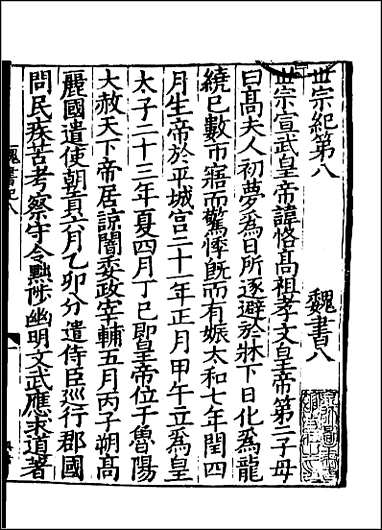 世宗紀第八　魏書八
世宗宣武皇帝諱恪髙祖孝文皇帝第二子母
曰髙夫人初夢爲日所逐避於牀下日化爲龍
繞已數帀寤而驚悸旣而有娠太和七年閏四
月生帝於平城宫二十一年正月甲午立爲皇
太子二十三年夏四月丁巳即皇帝位于魯陽
大赦天下帝居諒闇委政宰輔五月丙子朔髙
麗國遣使朝貢六月乙卯分遣侍臣巡行郡國
問民疾苦考察守令黜陟幽明文武應求道著
魏書紀八